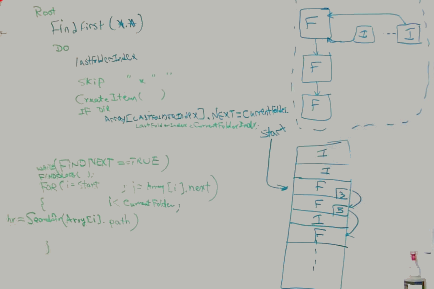 Root
FindFirst (*.*)
DO
lastFolderIndex
Skip "." "
CreateItem( )
IF DIR
Array[LASTFOLDERINDEX].NEXT=CurrentFolder
LastFolderIndex=CurrentFolderIndex
while(FINDNEXT==TRUE)
FINDCLOSE( );
FOR(i=Start ; i=Array[i].next)
{ i<CurrentFolder;
hr=SearchIn(Array[i].path)
}
F
I
I
F
F
Start
I
I
F
F
I
F